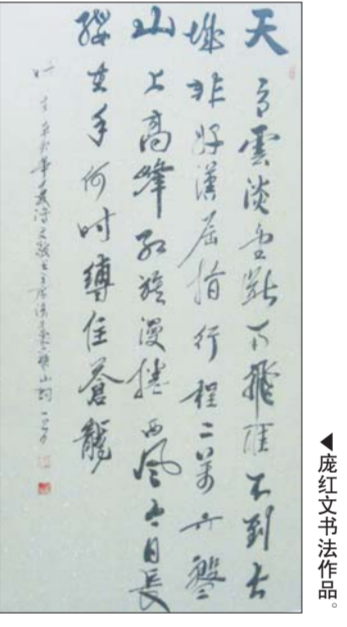 天高雲淡望斷南飛雁不到長
城非好漢屈指行程二萬六盤
山上高峰紅旗漫捲西風今日長
纓在手何时縛住蒼龍
六盤山詞
◀庞红文书法作品。